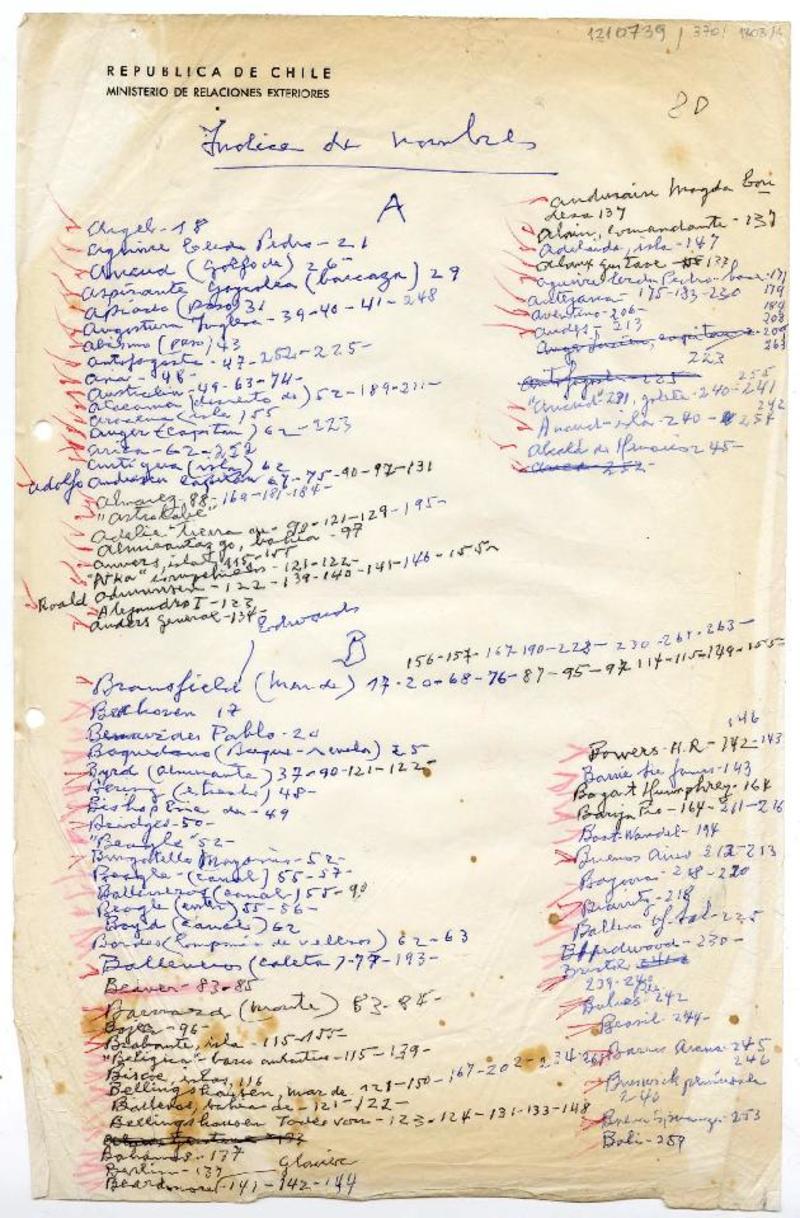 1210739 / 370
REPUBLICA DE CHILE
MINISTERIO DE RELACIONES EXTERIORES
80
Índice de nombres
A
Angel-18
Aguirre Cerda Pedro-21
Arnaud (golfo de) 26-
Aspirante (barcaza) 29
(paso) 31
Angostura Inglesa-39-40-41-248
Abismo (paso) 43
Antofagasta-47-252-225-
-48-
-49-63-74-
Atacama (desierto de) 52-189-211-
(isla) 55
Anger (capitan) 62-223
Arica-62-252
Antigua (isla) 62
Adolfo Andresen capitan 67-75-90-97-131
Almarez-88-169-181-184-
"Astrolabe"
Adelie tierra de-90-121-129-195-
Almirantazgo, bahia-97
Anvers, isla-115-155
"Atka" rompehielos-121-122-
Roald Admunsen-122-139-140-141-146-155-
Alejandro I-123
Anders general-134-
Edwards
Andresaine Magda Con
desa 137
Alain, comandante-137
Adelaida, isla-147
Gustave 133
Aguirre Cerda Pedro-base-171
Artegana-175-183-230 179
Aventino-206- 184
Andes-213 208
capitan 209
263
223
Antofagasta-225 255
"Arnaud" 231, goleta-240-241
Arnaud-isla-240-254 242
Alcalá de Henares 245-
Arica 252-
B
156-157-167-190-228-230-261-263-
Bransfield (Mar de) 17-20-68-76-87-95-97-114-115-149-155-
Bethoven 17
Benavides Pablo-20
Baquedano (Buque-escuela) 25
Byrd (almirante) 37-90-121-122-
Bering (estrecho) 48-
Bishop Ema de-49
Bridges-50-
"Beagle" 52-
Magoria-52-
Beagle-(canal) 55-57-
Balleneros (canal) 55-90
Beagle 55-56-
Boyd (canal) 62
Bordes (Compañia de veleros) 62-63
Balleneros (caleta)-77-193-
Beaver-83-85
Barnard (monte) 83-84-
-96-
Brabante, isla-115-155-
"Bélgica" barco antartico-115-139-
Biscoe, islas, 116
Bellingshausen, mar de 121-150-167-202-234-261
Balleros, bahia de-121-122-
Bellingshausen Todeo von-123-124-131-133-148
Bahamas-137
Berlin-137
Beardmore-141-142-144
Glaciar
146
Bowers-H.R-142-143
Barrie sir James-143
Bogart Humphrey-164
Baroja Pio-164-211-216
Boot-Wandel-194
Buenos Aires 212-213
-218-220
Biarritz-218
Ballena of sal-225
-230-
Bristol
239-242
Bulnes-242
Brasil-244-
Barros Arana-245
246
Brunswick peninsula
246
Buena Esperanza-253
Bali-259